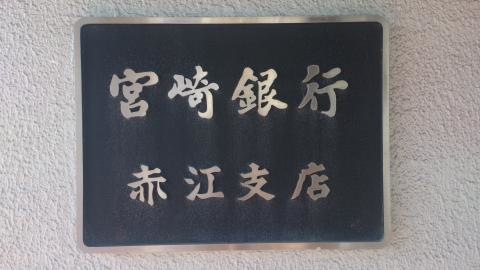 宮崎銀行
赤江支店